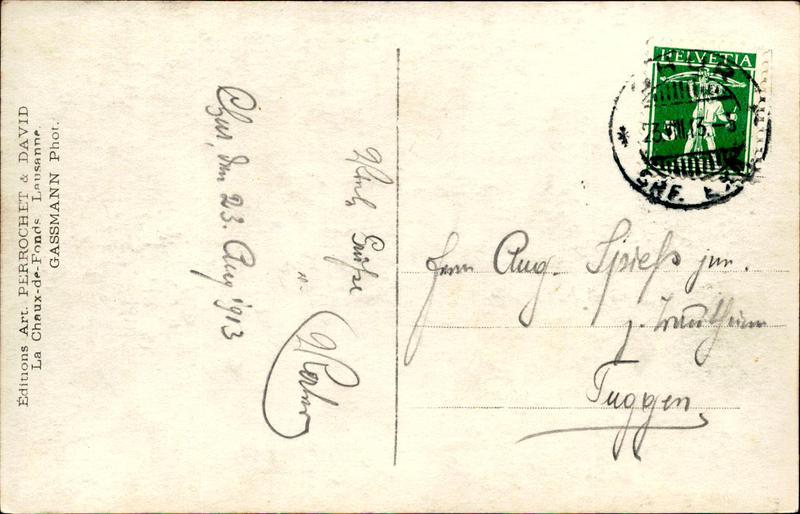 Éditions Art. PERROCHET & DAVID
La Chaux-de-Fonds Lausanne.
GASSMANN Phot.
Chur, den 23. Aug 1913
Grüße
HELVETIA
23. VIII 13. - 8
Herrn Aug. Spieß jun.
z.
Tuggen